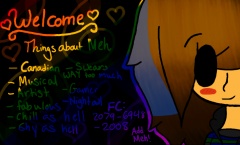 Welcome
Things about Meh
- Canadian - Swears
- Musical WAY too much
- Artist - Gamer
- fabulous - Night owl
- Chill as hell
- Gay as hell!
FC:
2079-6948
-2008
Add
Meh!